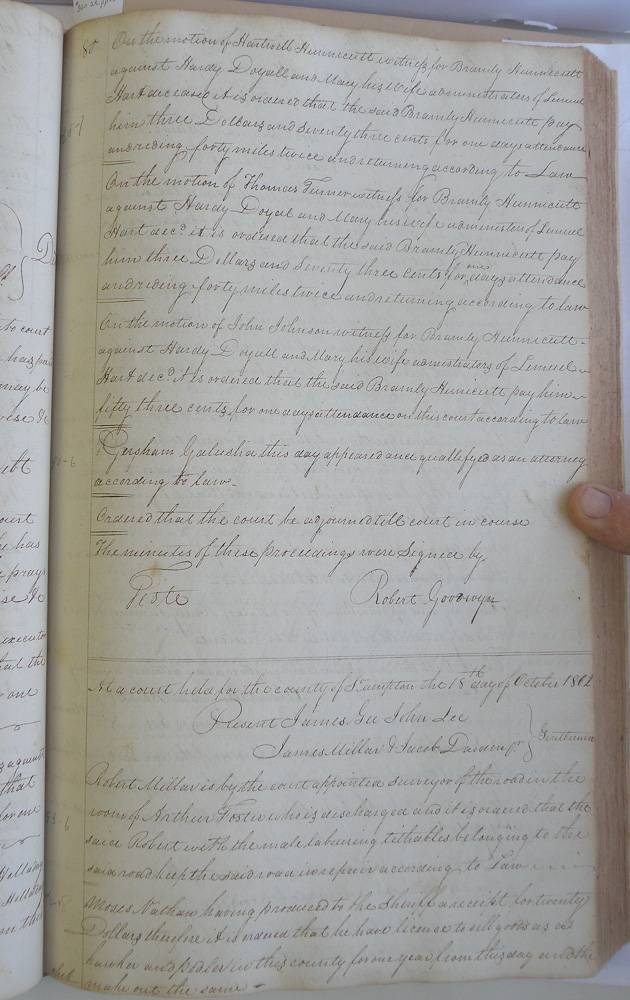 80 On the motion of Hartwell Hunnicutt witness for Bramly Hunnicutt
against Hardy Doyall and Mary his wife administrators of Lemuel
Hart deceased it is ordered that the said Bramly Hunnicutt pay
him three Dollars and Seventy three cents for one days attendance
and riding forty miles twice and returning according to Law
On the motion of Thomas Turner witness for Bramly Hunnicutt
against Hardy Doyal and Mary his wife administors of Lemuel
Hart decd it is ordered that the said Bramly Hunnicutt pay
him three Dollars and Seventy three Cents for one days attendance
and riding forty miles twice and returning according to law
On the motion of John Johnson witness for Bramly Hunnicutt
against Hardy Doyall and Mary his wife admistrators of Lemuel
Hart decd it is ordered that the said Bramly Hunicutt pay him
fifty three cents for one days attendance on this court according to law
Gersham Galusha this day appeared and quallifyed as an attorney
according to law.
Ordered that the court be adjourned till court in course
The minutes of these proceedings were Signed by
Teste Robert Goodwyn
At a court held for the county of St ampton the 18th day of October 1802
Present James Gee John Lee
James Millar & Jacob Gentlemen
Robert Millar is by the court appointed surveyor of the road in the
room of Arthur Foster who is discharged and it is ordered that the
said Robert with the male labouring tithables belonging to the
said road keep the said road in repair according to Law
Moses Nathan having produced to the Sheriff a receipt for twenty
Dollars therefore it is ordered that he have license to sell goods as a
hawker and pedler in this county for one year from this day and the
clerk make out the same